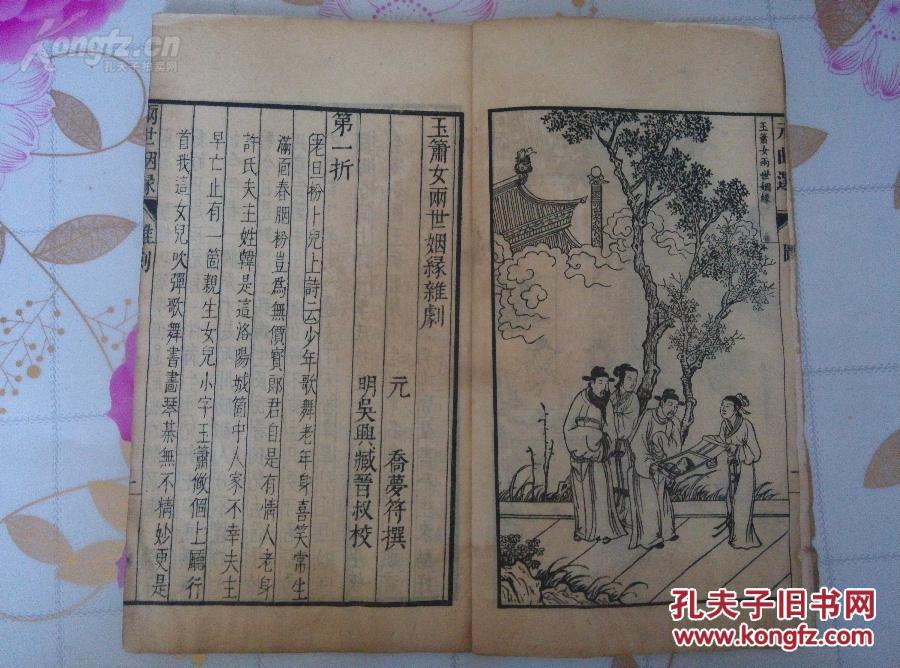 Kongfz.cn
孔夫子拍卖网
玉簫女兩世姻緣
玉簫女兩世姻緣雜劇
元　喬夢符撰
明吳興臧晉叔校
第一折
老旦扮卜兒上詩云少年歌舞老年身喜笑常生
滿面春胭粉豈爲無價寶郎君自是有情人老身
許氏夫主姓韓是這洛陽城箇中人家不幸夫主
早亡止有一箇親生女兒小字玉簫做個上廳行
首我這女兒吹彈歌舞書畫琴棊無不精妙更是
兩世姻緣
雜劇
一
孔夫子旧书网
www.kongfz.com